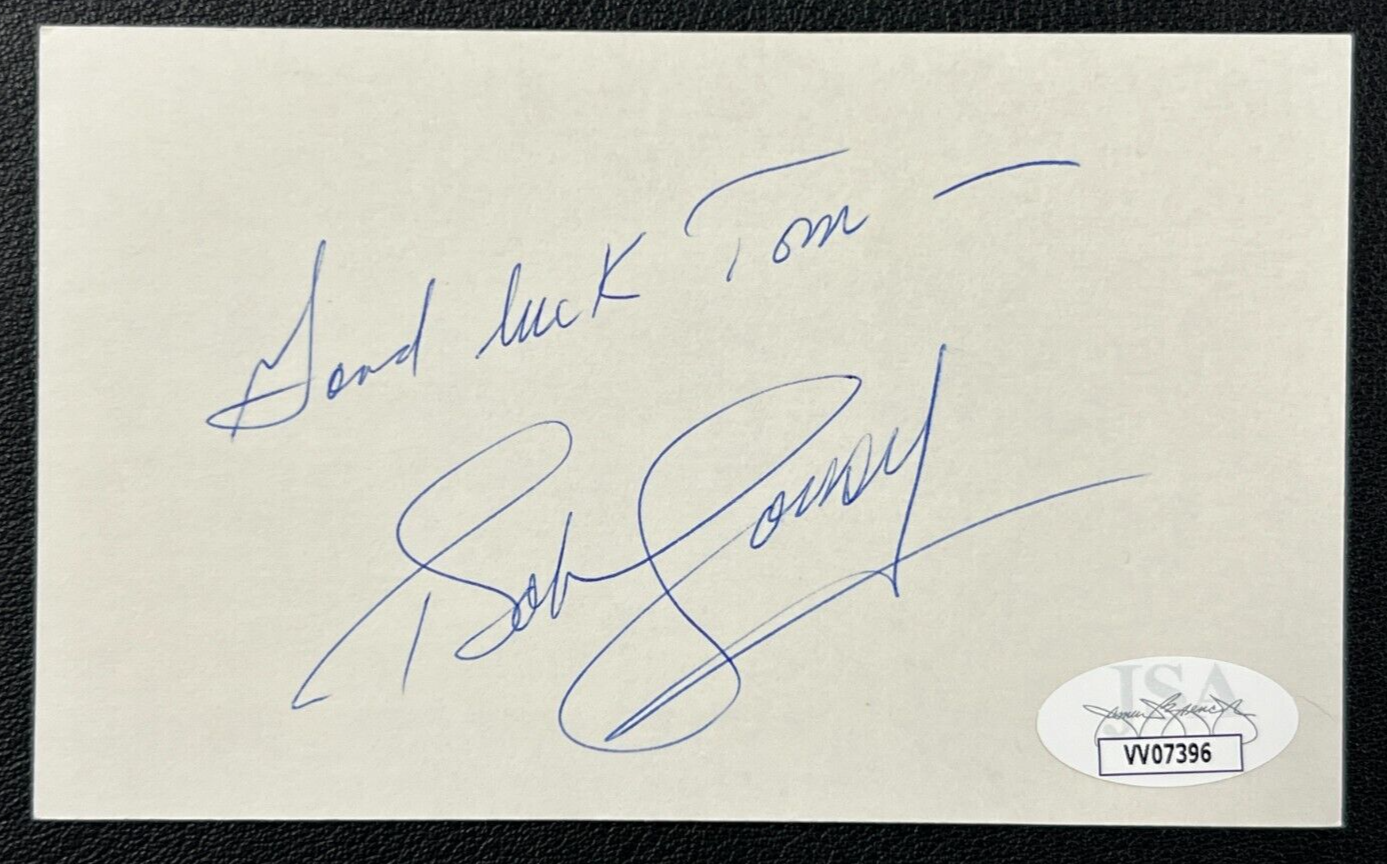 Good luck Tom —
Bob Cousy
JSA
James Spence Jr
VV07396